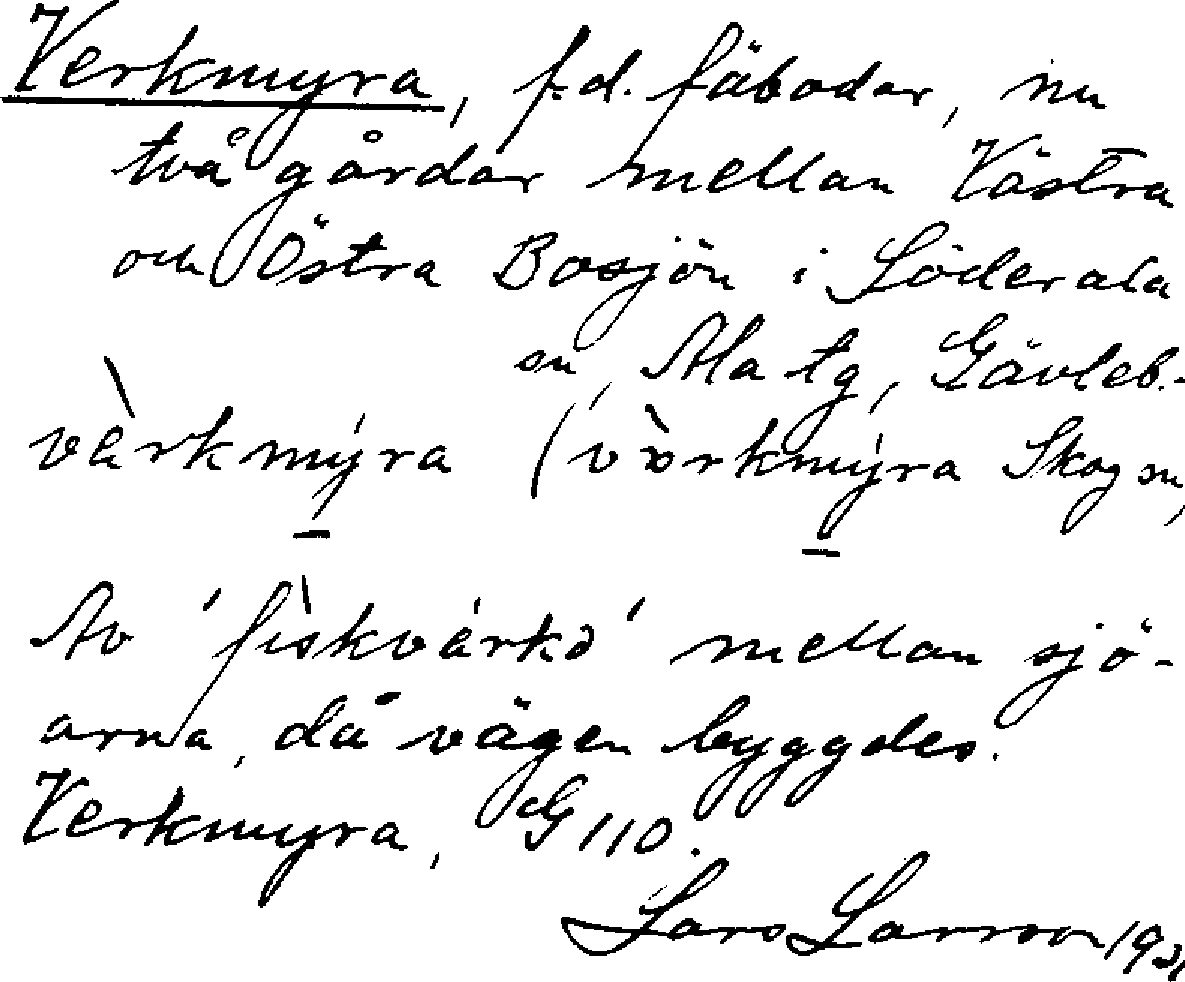 Verkmyra, f.d. fäbodar, nu
två gårdar mellan Västra
och Östra Bosjön i Söderala
sn, Ala tg, Gävleb.
vàrkmýra (vòrkmýra Skog sn,
Av 'fìskvárkə' mellan sjö-
arna, då vägen byggdes.
Verkmyra, G 110.
Lars Larsson